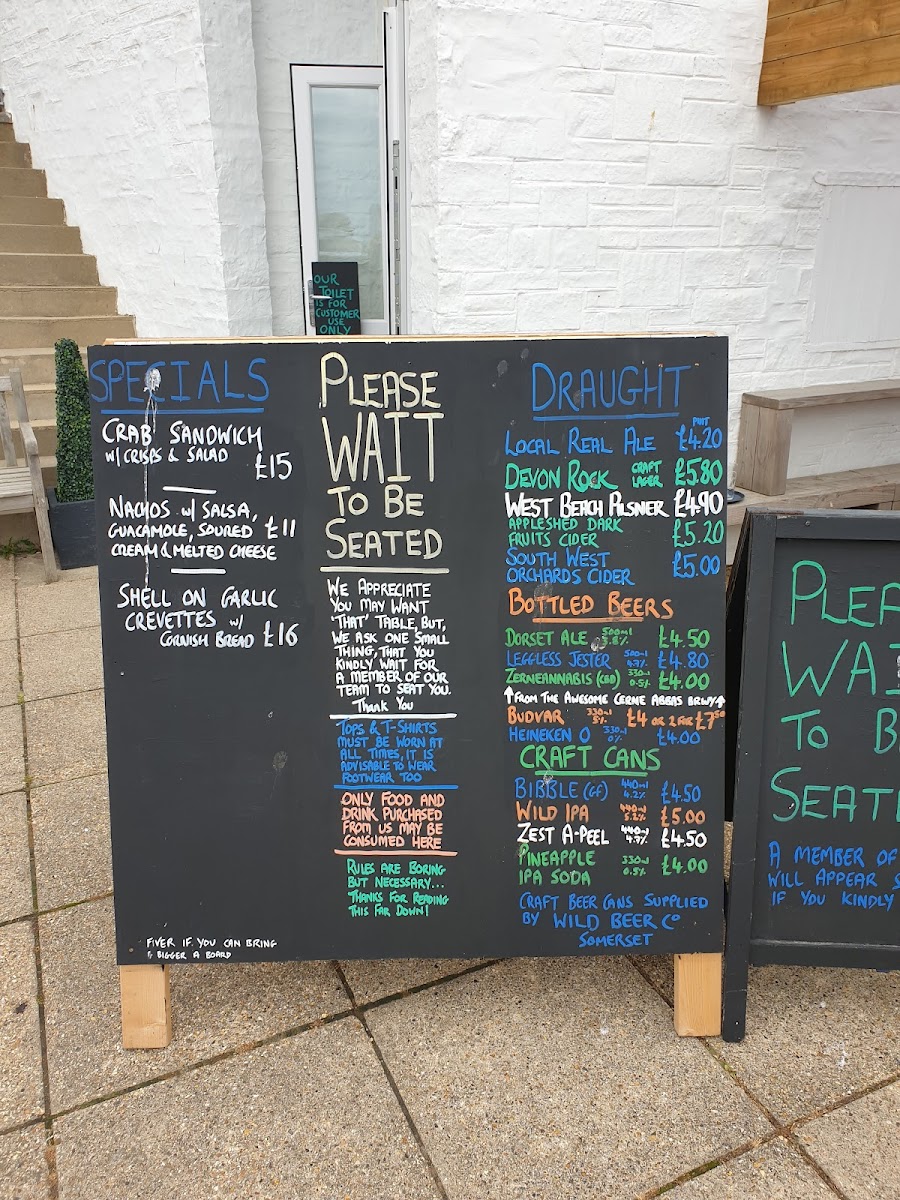 OUR
TOILET
IS FOR
CUSTOMER
USE
ONLY
SPECIALS
CRAB SANDWICH
W/ CRISPS & SALAD
£15
NACHOS W/ SALSA,
GUACAMOLE, SOURED £11
CREAM & MELTED CHEESE
SHELL ON GARLIC
CREVETTES W/
CORNISH BREAD £16
FIVER IF YOU CAN BRING
BIGGER A BOARD
PLEASE
WAIT
TO BE
SEATED
WE APPRECIATE
YOU MAY WANT
'THAT' TABLE, BUT,
WE ASK ONE SMALL
THING, THAT YOU
KINDLY WAIT FOR
A MEMBER OF OUR
TEAM TO SEAT YOU.
THANK YOU
TOPS & T-SHIRTS
MUST BE WORN AT
ALL TIMES, IT IS
ADVISABLE TO WEAR
FOOTWEAR TOO
ONLY FOOD AND
DRINK PURCHASED
FROM US MAY BE
CONSUMED HERE
RULES ARE BORING
BUT NECESSARY...
THANKS FOR READING
THIS FAR DOWN!
DRAUGHT
PINT
LOCAL REAL ALE £4.20
DEVON ROCK CRAFT LAGER £5.80
WEST BEACH PILSNER £4.90
APPLESHED DARK
FRUITS CIDER £5.20
SOUTH WEST
ORCHARDS CIDER £5.00
BOTTLED BEERS
DORSET ALE 500ml £4.50
LEGGLESS JESTER 500ml 4.7% £4.80
ZERNEANNABIS (CBD) 330ml 0.5% £4.00
↑FROM THE AWESOME CERNE ABBAS BRWY↑
BUDVAR 330ml 5% £4 OR 2 FOR £7.50
HEINEKEN 0 330ml 0% £4.00
CRAFT CANS
BIBBLE (GF) 440ml 4.2% £4.50
WILD IPA 440ml 5.2% £5.00
ZEST A-PEEL 440ml 4.7% £4.50
PINEAPPLE
IPA SODA 330ml 0.5% £4.00
CRAFT BEER CANS SUPPLIED
BY WILD BEER Co
SOMERSET
PLEA
WAI
TO B
SEAT
A MEMBER OF
WILL APPEAR
IF YOU KINDLY